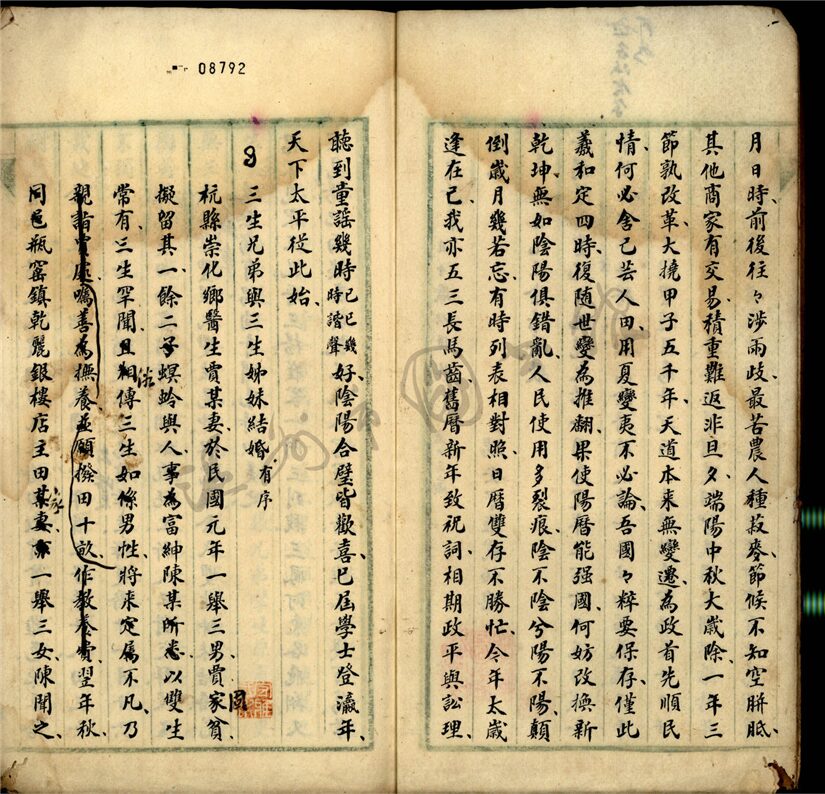 月日時前後往々涉兩歧最苦農人種菽麥節候不知空胼胝
其他商家有交易積重難返非旦夕端陽中秋大歲除一年三
節孰改革大撓甲子五千年天道本來無變遷為政首先順民
情何必舍己芸人田用夏變夷不必論吾國々粹要保存僅此
羲和定四時復隨世變為推翻果使陽曆能强國何妨改換新
乾坤無如陰陽俱錯亂人民使用多裂痕陰不陰兮陽不陽顛
倒歲月幾若忘有時列表相對照日曆雙存不勝忙今年太歲
逢在己我亦五三長馬齒舊曆新年致祝詞相期政平與訟理
聽到童謠幾時己巳幾時諧聲好陰陽合璧皆歡喜巳屆學士登瀛年
天下太平從此始
三生兄弟與三生姊妹結婚有序
杭縣崇化鄉醫生賈某妻於民國元年一舉三男賈家貧
擬留其一餘二子螟蛉與人事為富紳陳某所悉以雙生
常有三生罕聞且俗相傳三生如係男性將來定屬不凡乃
親詣賈處囑善為撫養並願撥田十畝作教養費翌年秋
同邑瓶窑鎮乾麗銀樓店主田某家妻亦一舉三女陳聞之
08792